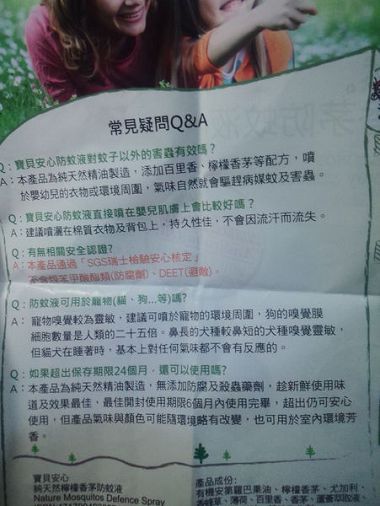 常見疑問Q&A
Q：寶貝安心防蚊液對蚊子以外的害蟲有效嗎？
A：本產品為純天然精油製造，添加百里香、檸檬香茅等配方，噴
於嬰幼兒的衣物或環境周圍，氣味自然就會驅趕病媒蚊及害蟲。
Q：寶貝安心防蚊液直接噴在嬰兒肌膚上會比較好嗎？
A：建議噴灑在棉質衣物及背包上，持久性佳，不會因流汗而流失。
Q：有無相關安全認證？
A：本產品通過「SGS瑞士檢驗安心核定」
苯甲酸酯類(防腐劑)、DEET(避敵)。
Q：防蚊液可用於寵物(貓、狗...等)嗎？
A：寵物嗅覺較為靈敏，建議可噴於寵物的環境周圍，狗的嗅覺膜
細胞數量是人類的二十五倍。鼻長的犬種較鼻短的犬種嗅覺靈敏，
但貓犬在睡著時，基本上對任何氣味都不會有反應的。
Q：如果超出保存期限24個月，還可以使用嗎？
A：本產品為純天然精油製造，無添加防腐及殺蟲藥劑，趁新鮮使用味
道及效果最佳，最佳開封使用期限6個月內使用完畢，超出仍可安心
使用，但產品氣味與顏色可能隨環境略有改變，也可用於室內環境芳
香。
寶貝安心
純天然檸檬香茅防蚊液
Nature Mosquitos Defence Spray
產品成份:
有機安第羅巴果油、檸檬香茅、尤加利、
薄荷、百里香、香茅、蘆薈萃取液、